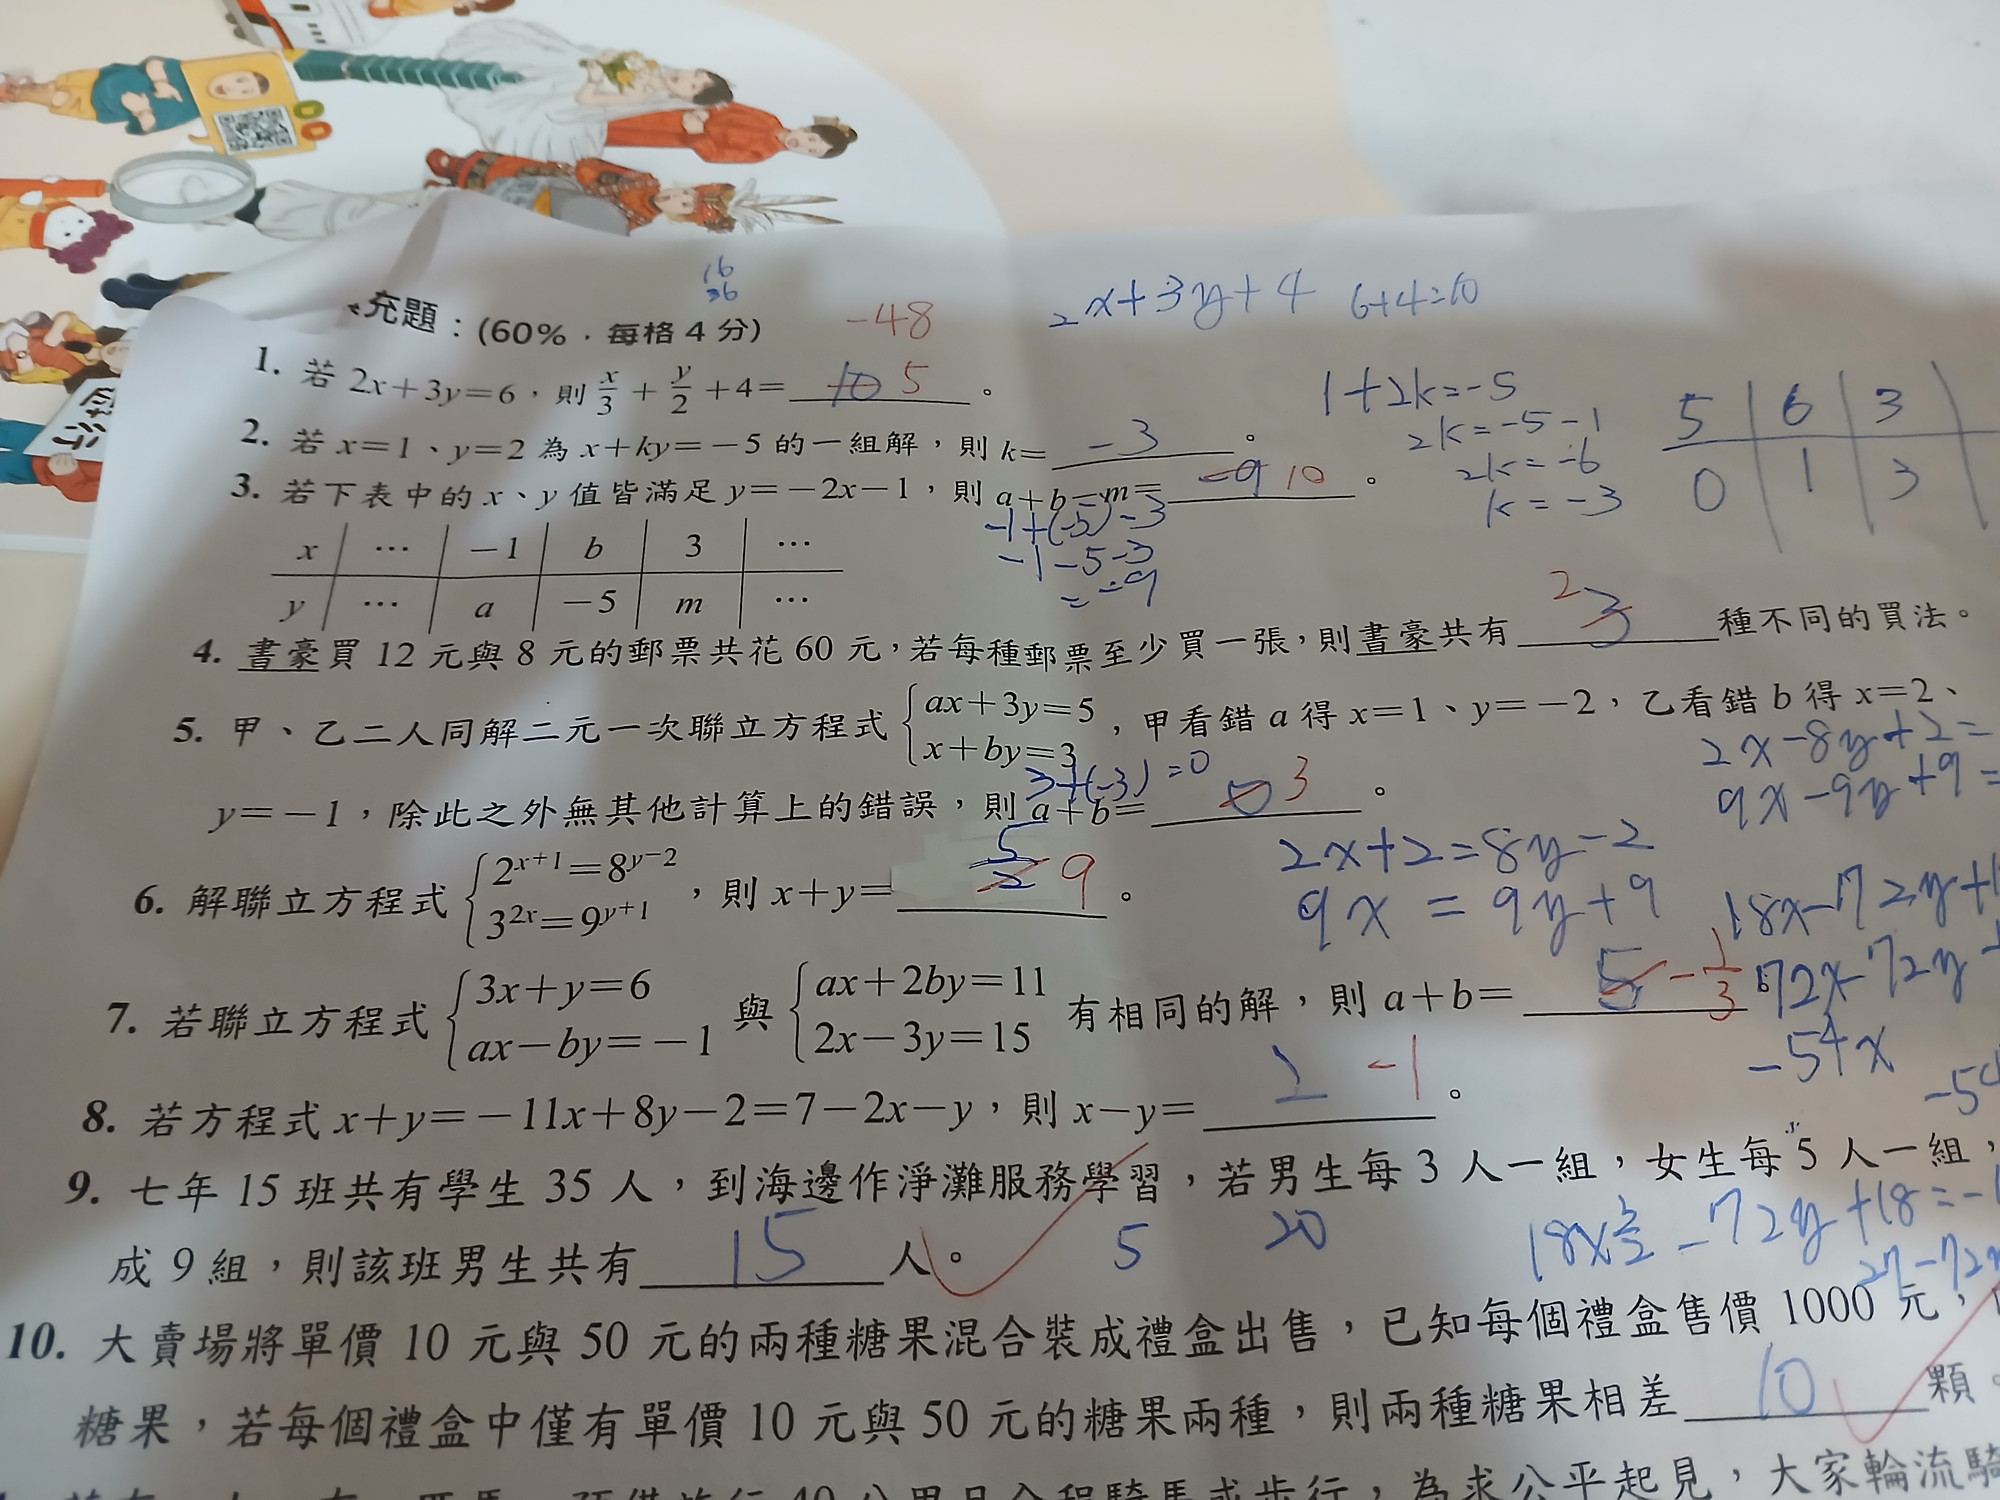 16
36
-48
2x+3y+4 6+4=10
充題：(60%，每格 4 分)
1. 若 2x+3y=6，則 x/3 + y/2 +4= 10 5 。
1+2k=-5
2k=-5-1
2k=-6
k=-3
5 6 3
0 1 3
2. 若 x=1、y=2 為 x+ky=-5 的一組解，則 k= -3 。
3. 若下表中的 x、y 值皆滿足 y=-2x-1，則 a+b-m= -9 10 。
-1+(-5)-3
-1-5-3
=-9
x … -1 b 3 …
y … a -5 m …
4. 書豪買 12 元與 8 元的郵票共花 60 元，若每種郵票至少買一張，則書豪共有 3 2 種不同的買法。
5. 甲、乙二人同解二元一次聯立方程式 { ax+3y=5 x+by=3 ，甲看錯 a 得 x=1、y=-2，乙看錯 b 得 x=2、
3+(-3)=0
y=-1，除此之外無其他計算上的錯誤，則 a+b= 0 3 。
2x-8y+2=
9x-9y+9=
6. 解聯立方程式 { 2^{x+1}=8^{y-2} 3^{2x}=9^{y+1} ，則 x+y= 5/2 9 。
2x+2=8y-2
9x=9y+9
18x-72y+1
72x-72y
-54x
-54
7. 若聯立方程式 { 3x+y=6 ax-by=-1 與 { ax+2by=11 2x-3y=15 有相同的解，則 a+b= 5 -1/3
8. 若方程式 x+y=-11x+8y-2=7-2x-y，則 x-y= 2 -1 。
9. 七年 15 班共有學生 35 人，到海邊作淨灘服務學習，若男生每 3 人一組，女生每 5 人一組，
成 9 組，則該班男生共有 15 人。
5 20
-72y+18=-1
27-72
10. 大賣場將單價 10 元與 50 元的兩種糖果混合裝成禮盒出售，已知每個禮盒售價 1000 元，
糖果，若每個禮盒中僅有單價 10 元與 50 元的糖果兩種，則兩種糖果相差 10 顆。
為求公平起見，大家輪流騎